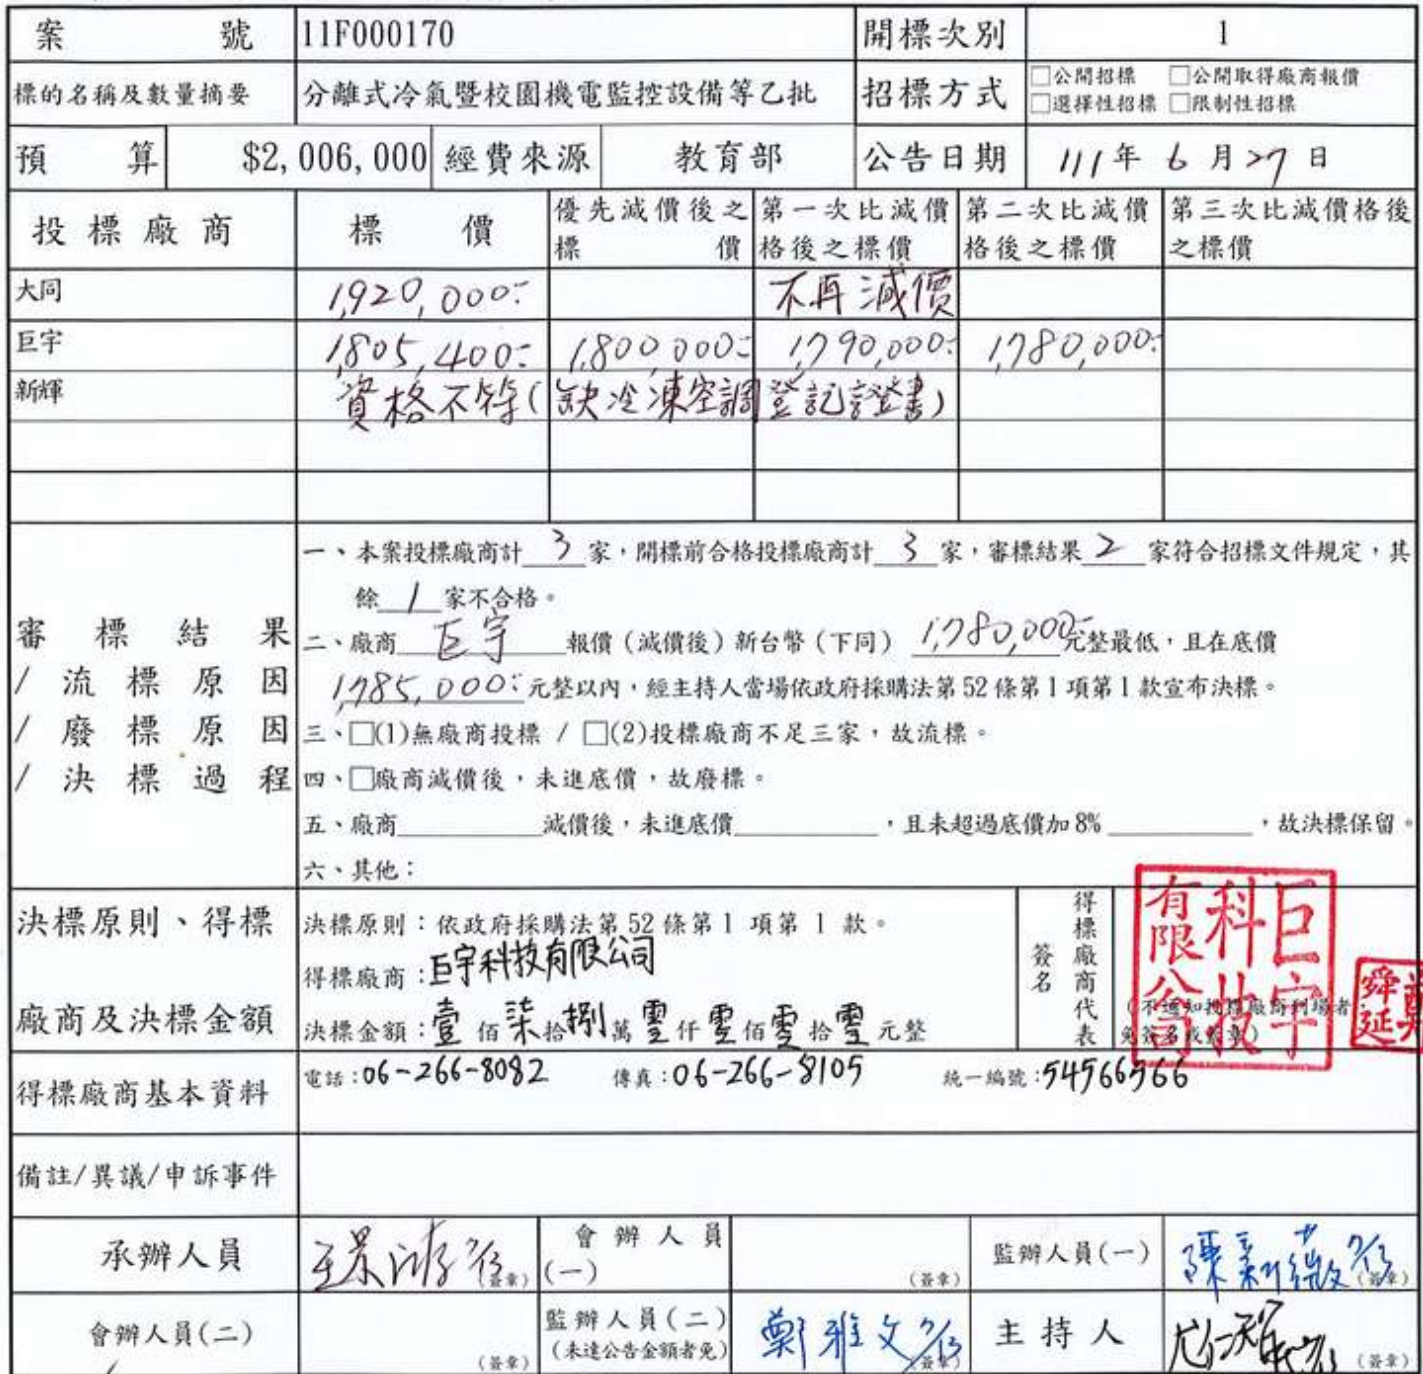 案 號 11F000170 開標次別 1
標的名稱及數量摘要 分離式冷氣暨校園機電監控設備等乙批 招標方式 □公開招標 □公開取得廠商報價
□選擇性招標 □限制性招標
預 算 $2,006,000 經費來源 教育部 公告日期 111年 6 月 27 日
投標廠商 標 價 優先減價後之標 價 第一次比減價格後之標價 第二次比減價格後之標價 第三次比減價格後之標價
大同 1,920,000.- 不再減價
巨宇 1,805,400.- 1,800,000.- 1,790,000.- 1,780,000.-
新輝 資格不符(缺冷凍空調登記證書)
審標結果
/流標原因
/廢標原因
/決標過程
一、本案投標廠商計 3 家,開標前合格投標廠商計 3 家,審標結果 2 家符合招標文件規定,其
餘 1 家不合格。
二、廠商 巨宇 報價(減價後)新台幣(下同) 1,780,000.- 元整最低,且在底價
1,785,000.- 元整以內,經主持人當場依政府採購法第52條第1項第1款宣布決標。
三、□(1)無廠商投標 / □(2)投標廠商不足三家,故流標。
四、□廠商減價後,未進底價,故廢標。
五、廠商 減價後,未進底價 ,且未超過底價加8% ,故決標保留。
六、其他:
決標原則、得標
廠商及決標金額
決標原則:依政府採購法第52條第1項第1款。
得標廠商:巨宇科技有限公司
決標金額:壹佰柒拾捌萬零仟零佰零拾零元整
得標廠商代表
簽名
(不通知投標廠商到場者
免簽名或蓋章)
巨宇
科技
有限公司
舜延
得標廠商基本資料 電話:06-266-8082 傳真:06-266-8105 統一編號:54566566
備註/異議/申訴事件
承辦人員 (簽章) 會辦人員(一) (簽章) 監辦人員(一) 陳新薇 7/13 (簽章)
會辦人員(二) (簽章) 監辦人員(二)
(未達公告金額者免) 鄭雅文 7/13 (簽章) 主持人 (簽章)